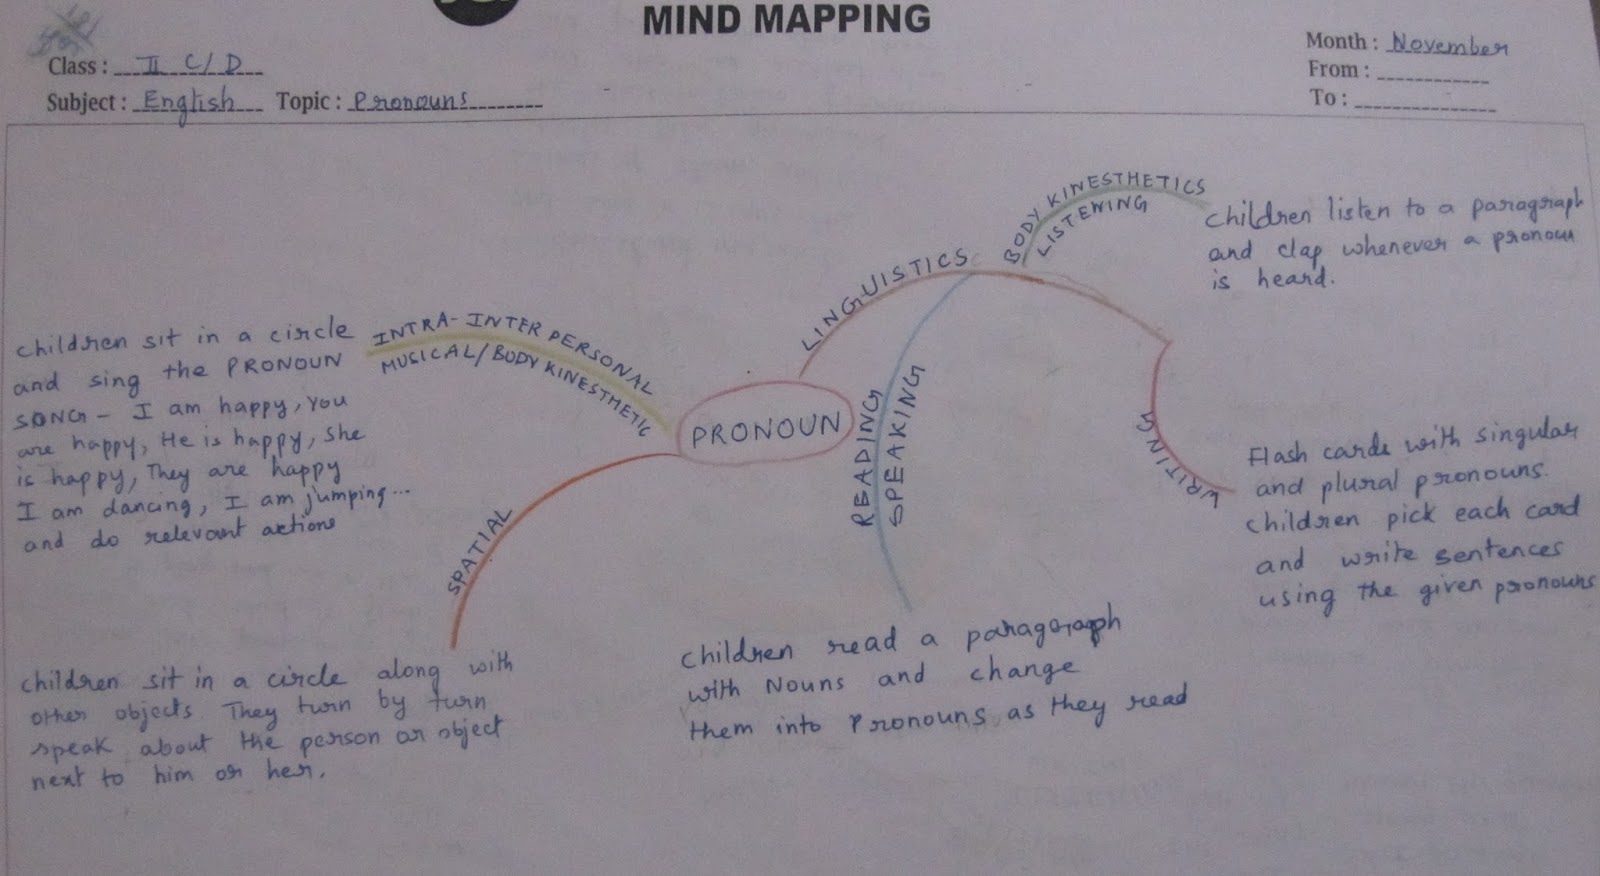 MIND MAPPING
Class : II C/D
Subject : English Topic : Pronouns
Month : November
From :
To :
INTRA-INTER PERSONAL
MUSICAL/BODY KINESTHETIC
children sit in a circle
and sing the PRONOUN
SONG - I am happy, you
are happy, He is happy, she
is happy, They are happy
I am dancing, I am jumping...
and do relevant actions
PRONOUN
LINGUISTICS
BODY KINESTHETICS
LISTENING
children listen to a paragraph
and clap whenever a pronoun
is heard.
WRITING
Flash cards with singular
and plural pronouns.
children pick each card
and write sentences
using the given pronouns
READING
SPEAKING
children read a paragraph
with Nouns and change
them into Pronouns as they read
SPATIAL
children sit in a circle along with
other objects. They turn by turn
speak about the person or object
next to him or her.